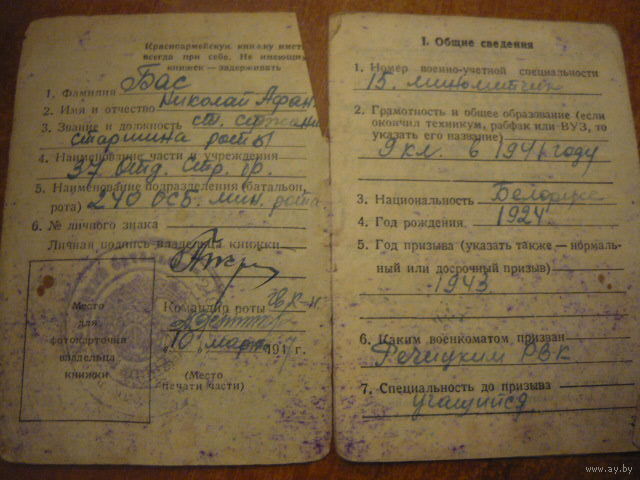 Красноармейскую книжку
всегда при себе. Не имеющих
книжек — задерживать
1. Фамилия Бас
2. Имя и отчество Николай Афан
3. Звание и должность ст. сержан
старшина роты
4. Наименование части и учреждения
37 отд. стр. бр.
5. Наименование подразделения (батальон,
рота) 240 рота
6. № личного знака
Личная подпись владельца книжки
Место
для
фотокарточки
владельца
книжки
Командир роты гв. к-н
"10" марта 1947 г.
(Место
печати части)
I. Общие сведения
1. Номер военно-учетной специальности
15. минометчик
2. Грамотность и общее образование (если
окончил техникум, рабфак или ВУЗ, то
указать его название)
9 кл. в 1941 году
3. Национальность Белорус
4. Год рождения 1924
5. Год призыва (указать также — нормаль-
ный или досрочный призыв)
1943
6. Каким военкоматом призван
Речицким РВК
7. Специальность до призыва
учащийся
www.ay.by